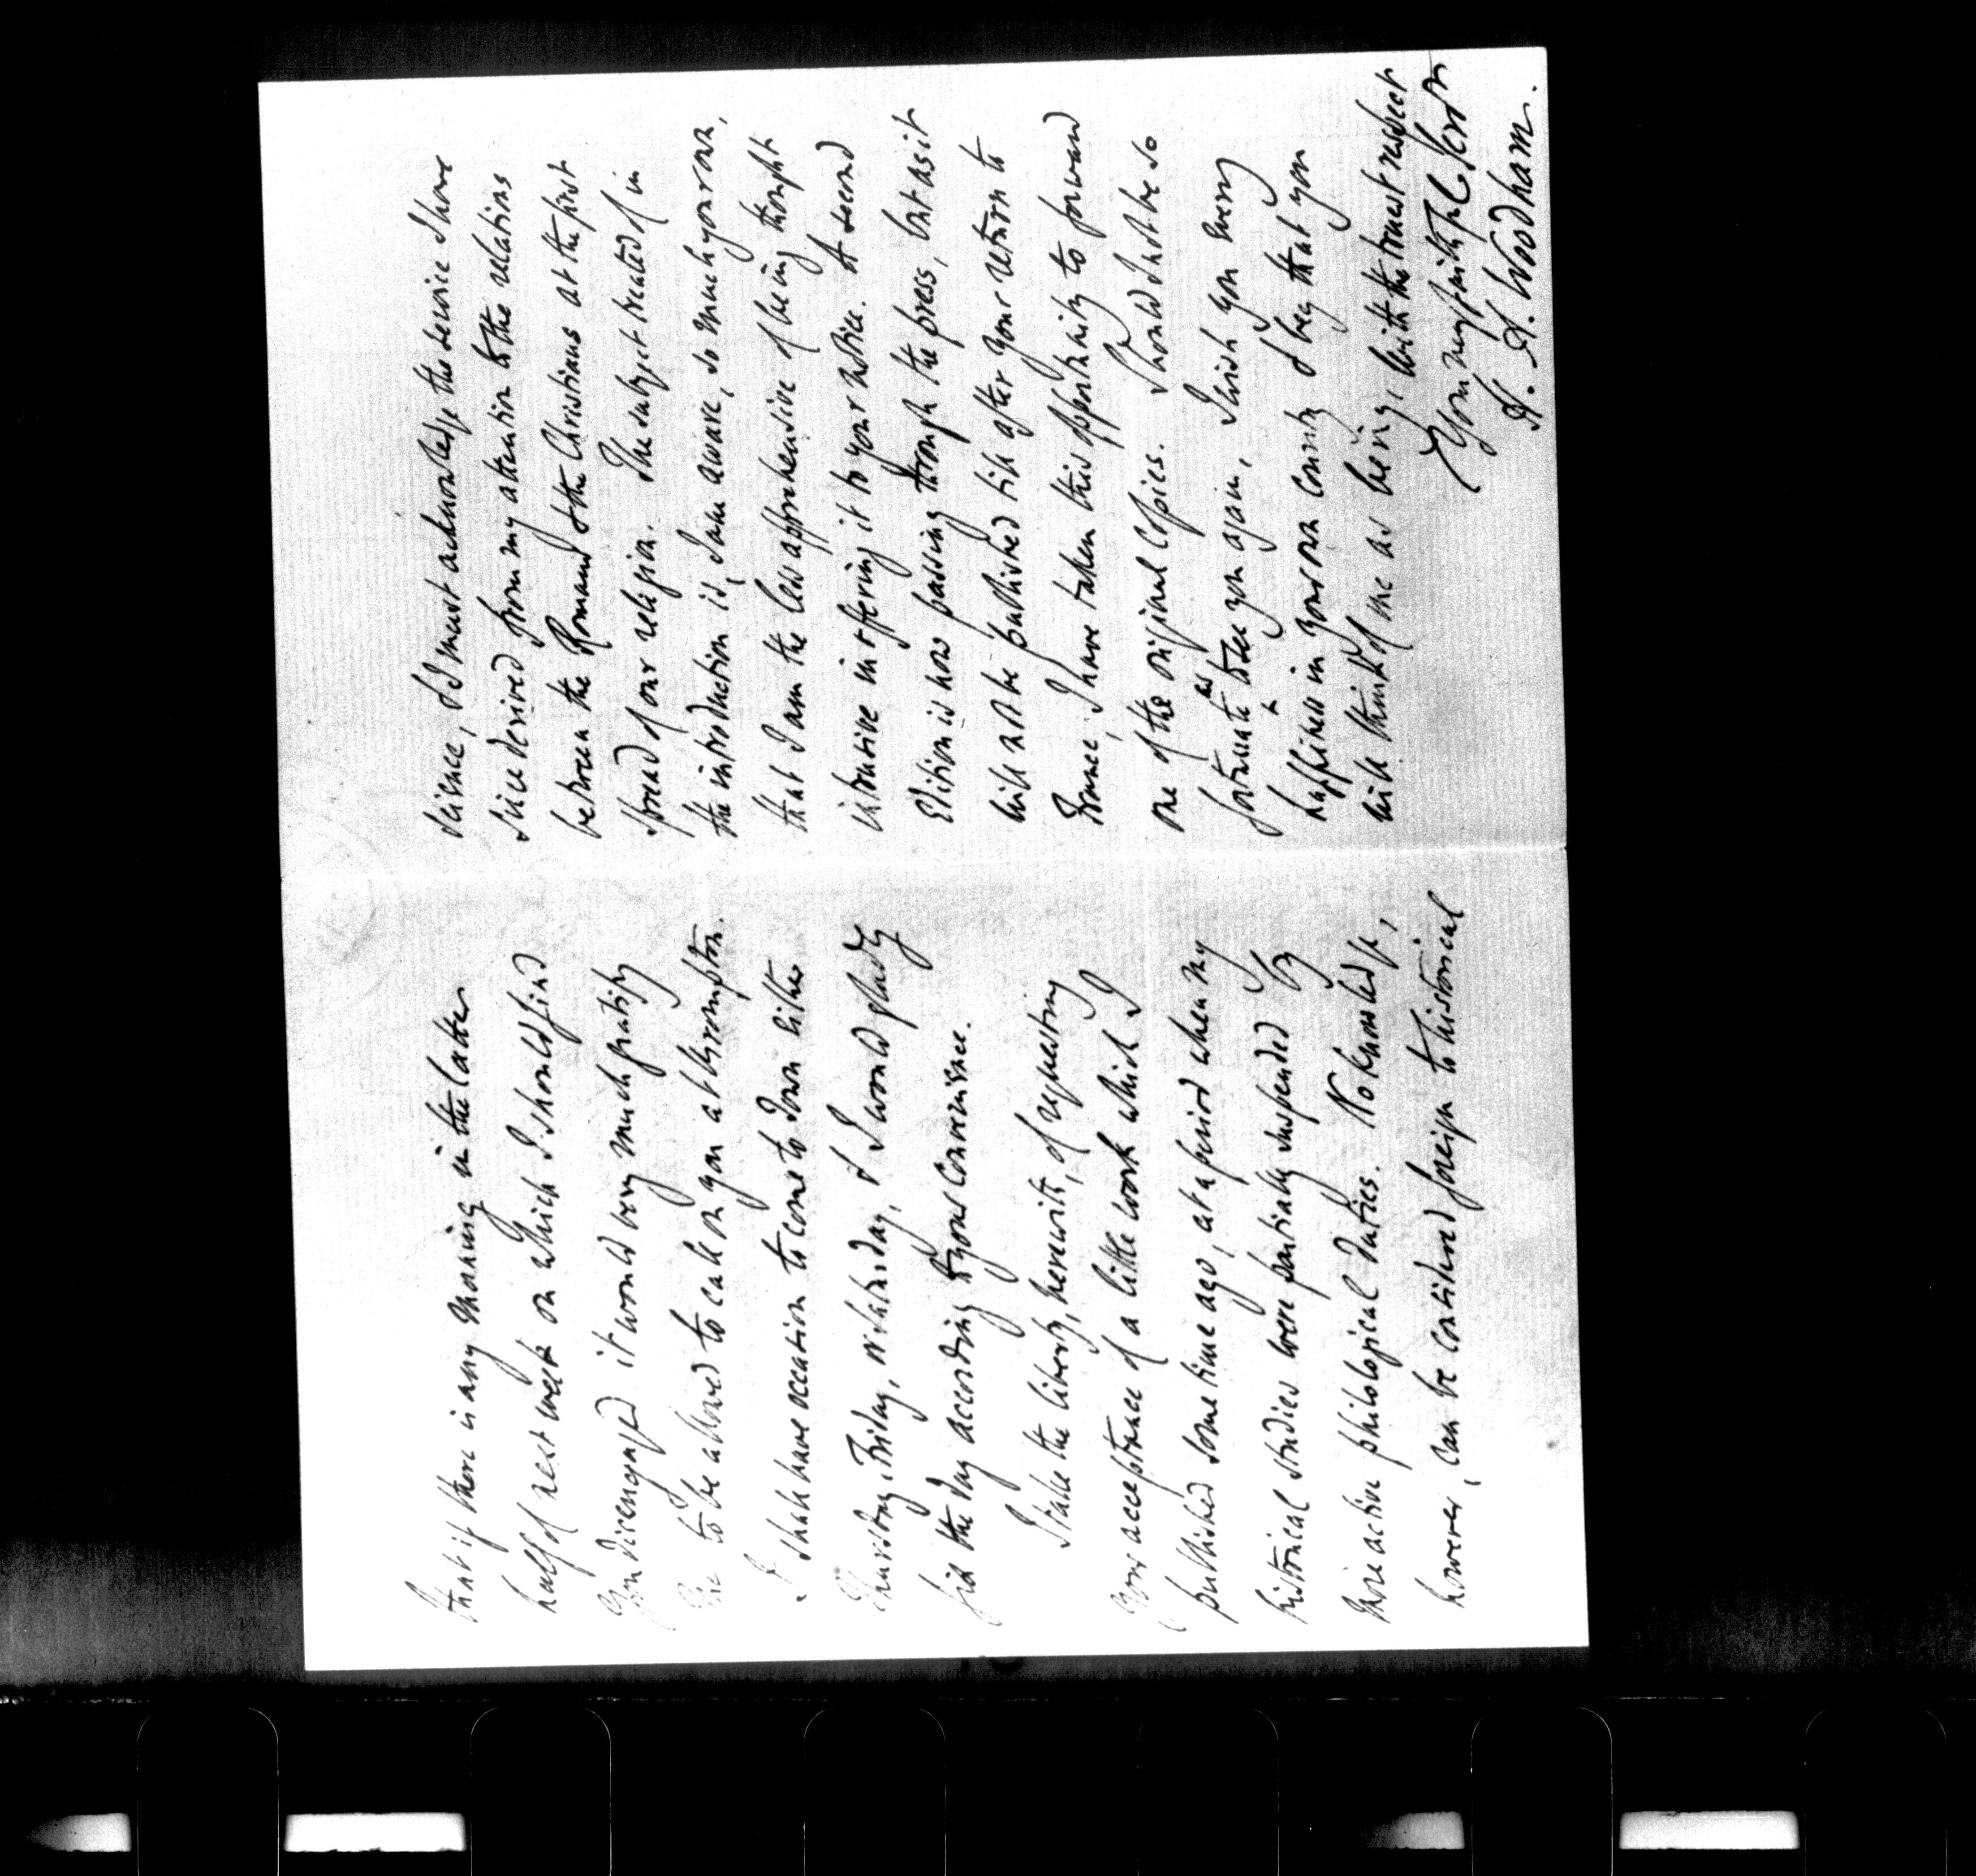 that if there is any morning in the latter
half of next week on which I should find
you disengaged it would very much gratify
me to be allowed to call on you at Brompton.
I shall have occasion to come to Town either
Thursday, Friday, or Saturday, & I would gladly
fix the day according to your convenience.
I take the liberty, herewith, of requesting
your acceptance of a little work which I
published some time ago, at a period when my
historical studies were partially suspended by
more active philological duties. No knowledge,
however, can be considered foreign to historical
science, & I must acknowledge the service I have
since derived from my attention to the relations
between the Romans & the Christians at the first
spread of our religion. The subject treated of in
the introduction is, I am aware, so much your own,
that I am the less apprehensive of being thought
intrusive in offering it to your notice. A second
Edition is now passing through the press, but as it
will not be published till after your return to
France, I have taken this opportunity to forward
one of the original copies. Should I not be so
fortunate as to see you again, I wish you every
happiness in your own country & beg that you
will think of me as being, with the truest respect
Your very faithful Servt
H. A. Woodham.